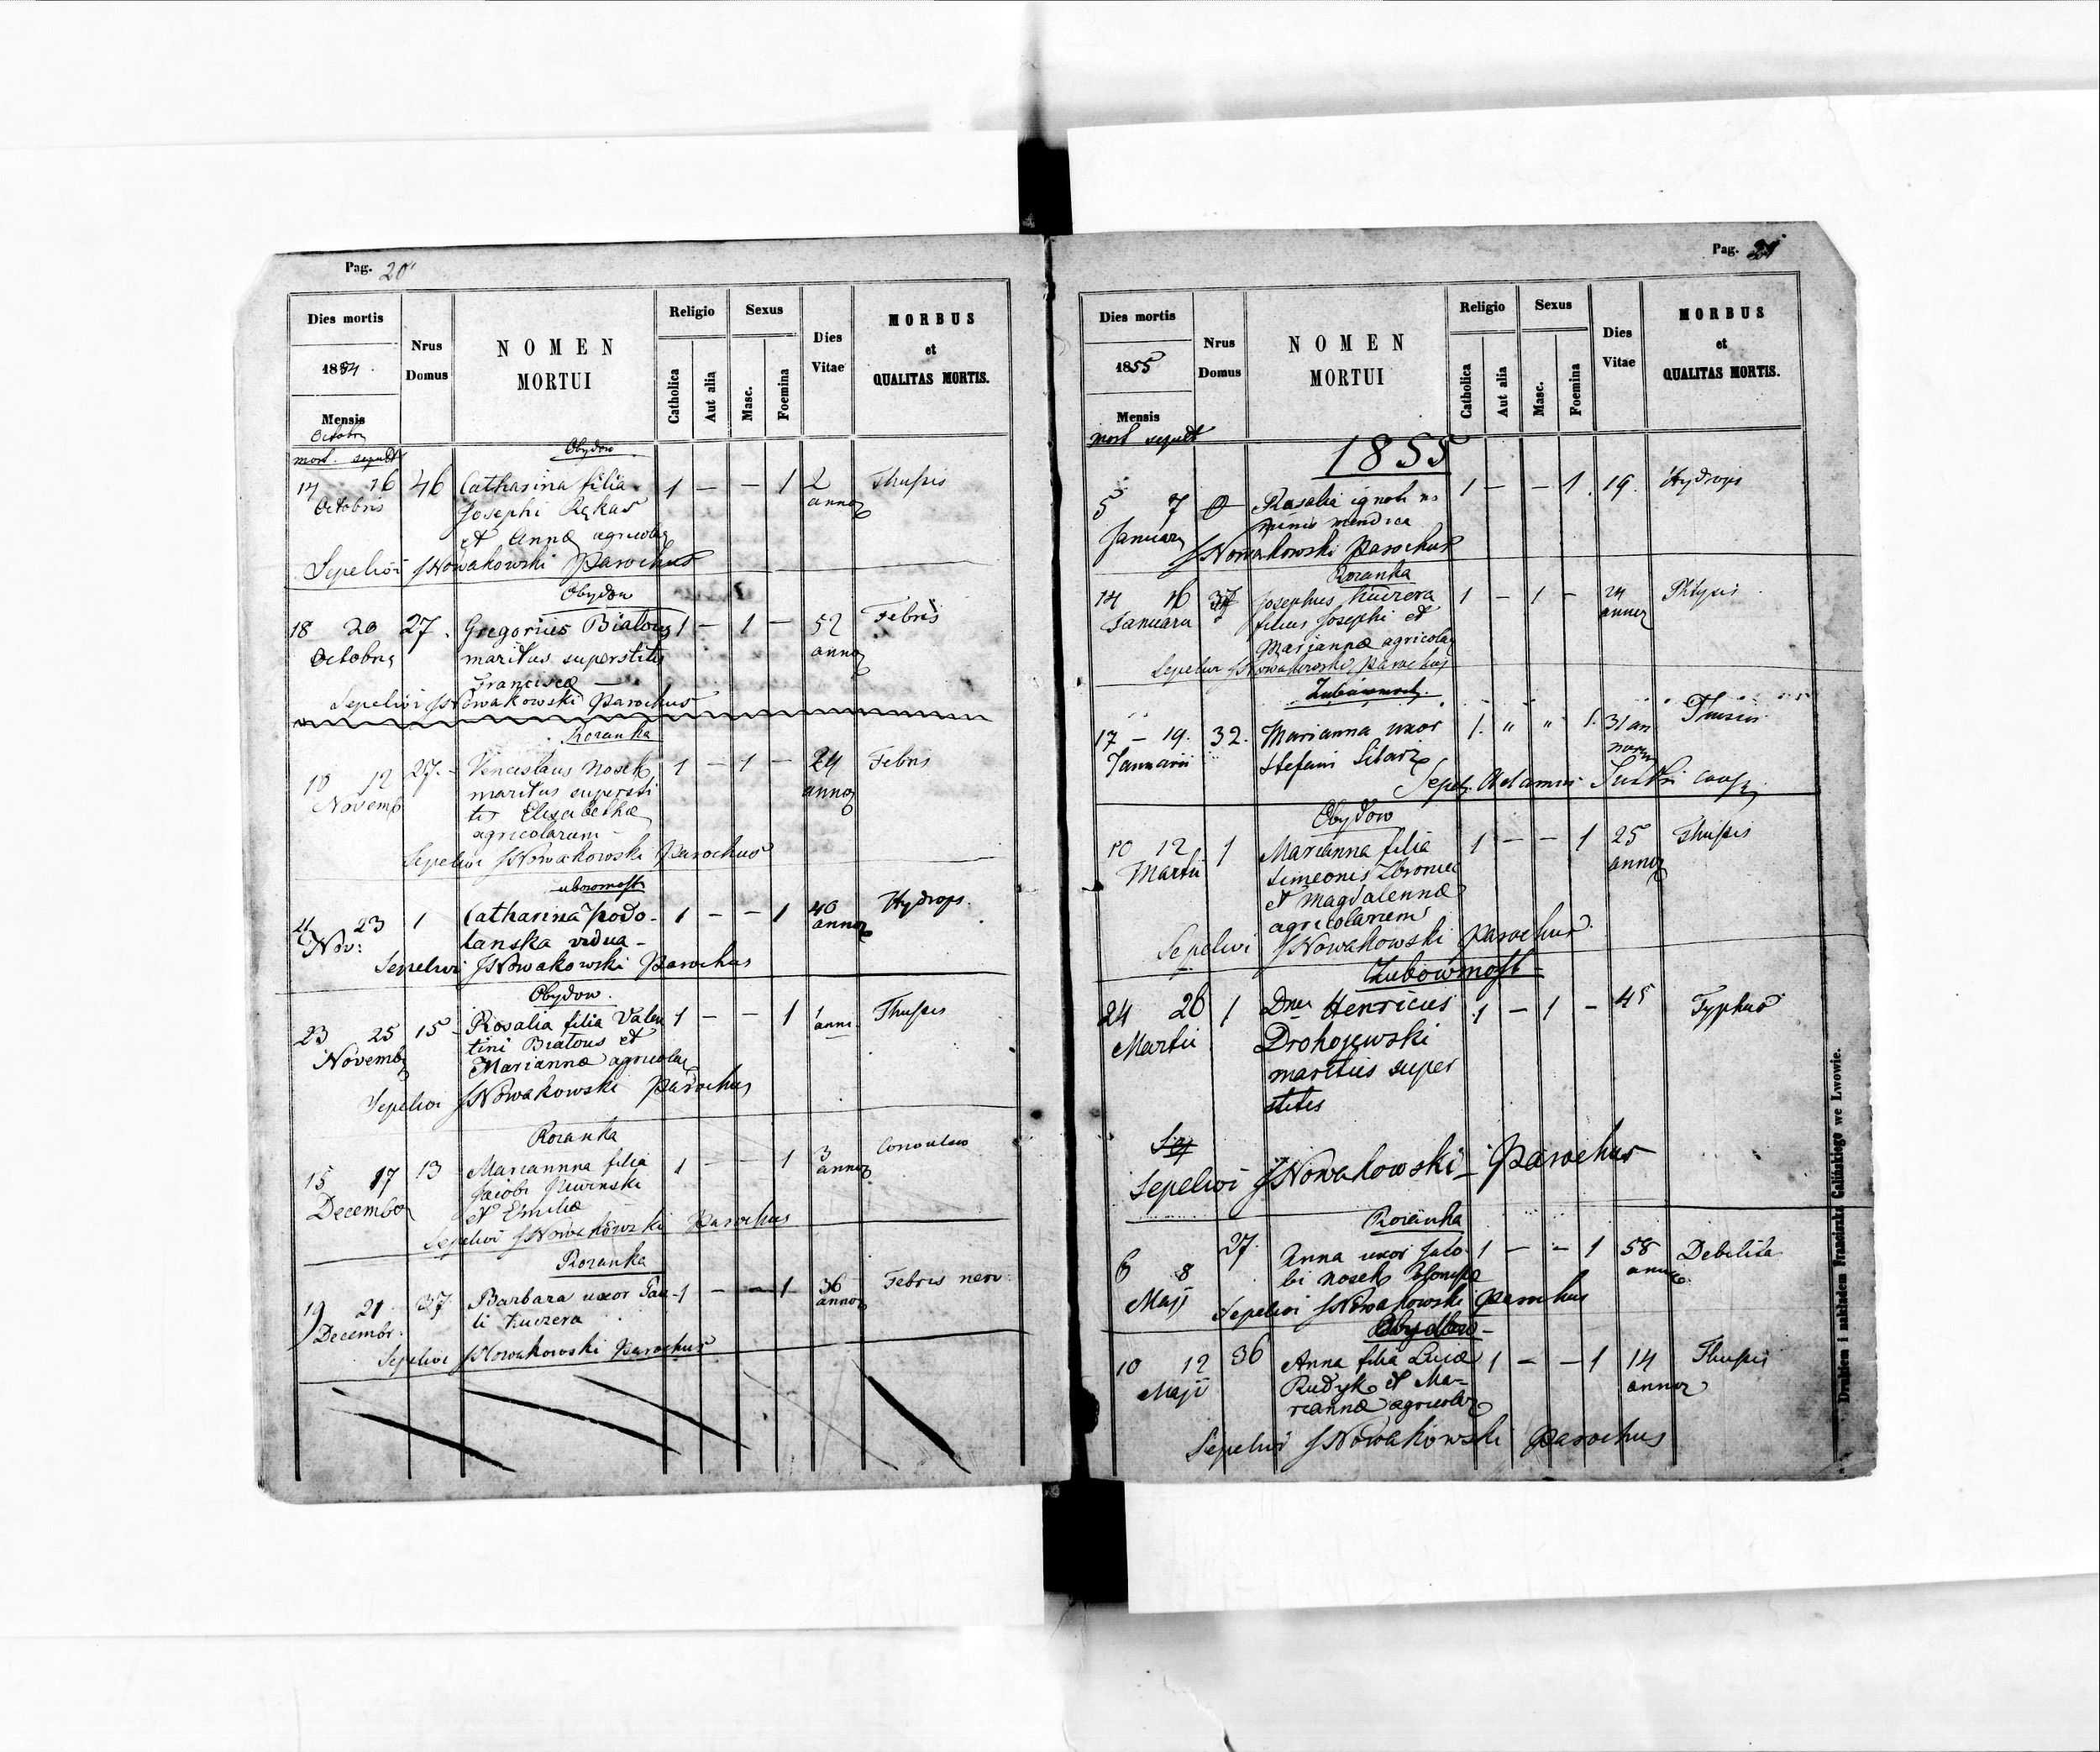 Pag. 20
Dies mortis
Nrus
Domus
NOMEN
MORTUI
Religio
Sexus
Dies
Vitae
MORBUS
et
QUALITAS MORTIS.
1854.
Catholica
Aut alia
Masc.
Foemina
Mensis
Octobr
mort. sepult
Obydow
14 16 46 Catharina filia 1 — — 1 2 Thusis
Octobris Josephi Rękas anno
et Anna agricola
Sepelivi JNowakowski Parochus
Obydow
18 20 27. Gregorius Bialous 1 — 1 — 52 Febris
Octobris maritus superstitis anno
Francisca —
Sepelivi JNowakowski Parochus
Rozanka
10 12 27. – Venceslaus Nosek 1 — 1 — 24 Febris
Novemb maritus supersti anno
tis Elisabetha
agricolarum
Sepelivi JNowakowski Parochus
ubowmost
21 23 1 Catharina Podo- 1 — — 1 40 Hydrops.
Nov: lanska vidua – anno
Sepelivi JNowakowski Parochus
Obydow.
23 25 15 – Rosalia filia Valen 1 — — 1 1 Thusis
Novemb tini Bialous et anni
Marianna agricola
Sepelivi JNowakowski Parochus
Rozanka
15 17 13 Mariannna filia 1 — — 1 3
December Jacobi anno
et Emilia
Sepelivi JNowakowski Parochus
Rozanka
19 21 37 Barbara uxor Pau- 1 — — 1 36 Febris nerv.
Decembr. li Kuczera anno
Sepelivi JNowakowski Parochus
Pag. 21
Dies mortis
Nrus
Domus
NOMEN
MORTUI
Religio
Sexus
Dies
Vitae
MORBUS
et
QUALITAS MORTIS.
1855
Catholica
Aut alia
Masc.
Foemina
Mensis
mort sepult
1855
5 7 0 Rosalia ignoti no 1 — — 1. 19. Hydrops
Januar minis mendica
JNowakowski Parochus
Rozanka
14 16 37 Josephus Kuczera 1 — 1 — 24
Januarii filius Josephi et anno
Marianna agricola
Sepelivi JNowakowski Parochus
17 – 19. 32. Marianna uxor 1. " " 1. 31 an
Januarii Stefani norum
Sepel. Adamus
Obydow
10 12 1 Marianna filia 1 — — 1 25 Thusis
Martii Simeonis anno
et Magdalenna
agricolarum
Sepelivi JNowakowski Parochus.
Zubowmost
24 26 1 Dnus Henricus 1 — 1 — 45 Typhus
Martii Drohojewski
maritus super
stitis
Sepelivi JNowakowski Parochus
Rozanka
6 8 37. Anna uxor Jaco- 1 — — 1 58 Debilita
Maji bi Nosek anno
Sepelivi JNowakowski Parochus
Obydow –
10 12 36 Anna filia Luca 1 — — 1 14 Thusis
Maji Rudyk et Ma- anno
rianna agricola
Sepelivi JNowakowski Parochus
Drukiem i nakładem Franciszka Galińskiego we Lwowie.